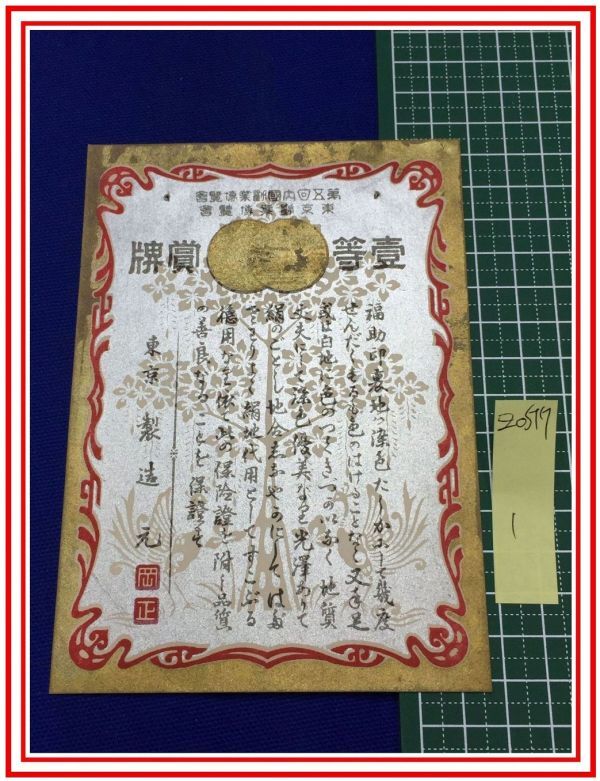 第五回内國勸業博覽會
東京勸業博覽會
壹等賞牌
福助印裏地ハ染色たしかにして幾度
せんだくするも色のはげることなく又手足
或は白地に色のつくきづかひなく地質
丈夫にして染色優美なる光澤ありて
絹のごとく地合しなやかにしてはだ
ざはりよく絹地代用としてすこぶる
德用なり依て此の保險證を附し品質
の善良なることを保證す
東京 製造元
岡正
1